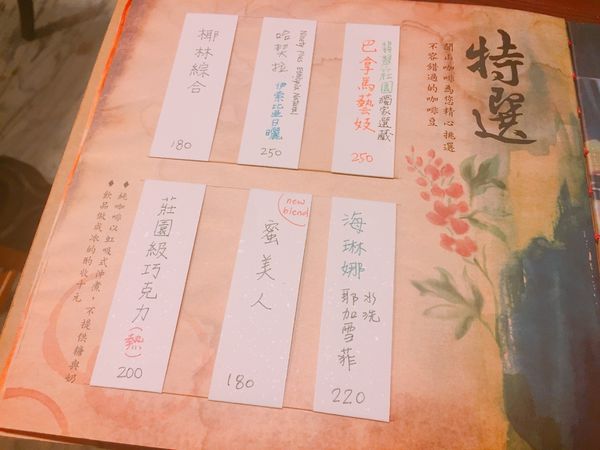 特選
開山咖啡為您精心挑選
不容錯過的咖啡豆
翡翠莊園
獨家選藏
巴拿馬藝妓
250
哈契拉
伊索比亞日曬
250
椰林綜合
180
海琳娜
水洗
耶加雪菲
220
new
blend
蜜美人
180
莊園級巧克力(熱)
200
◆純咖啡以虹吸式沖煮,不提供糖與奶
◆飲品做成冰的酌收十元